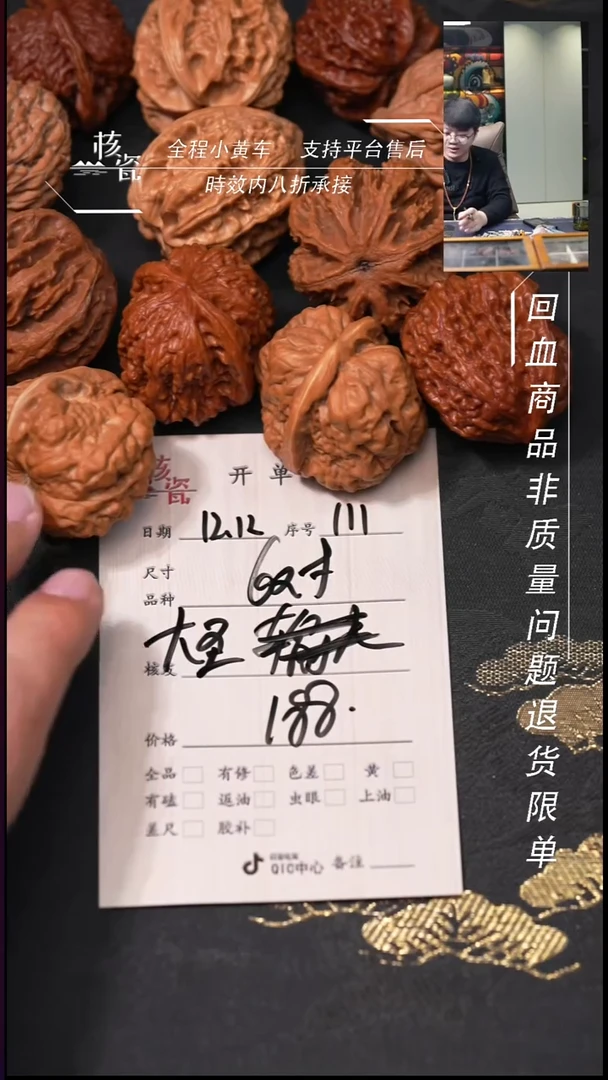 核瓷
全程小黄车 支持平台售后
時效内八折承接
回血商品非质量问题退货限单
核瓷
开单
日期 12.12 序号 111
尺寸 6对
品种
大圣
核友
188.
价格
全品 有修 色差 黄
有磕 返油 虫眼 上油
差尺 胶补
QIC中心 备注